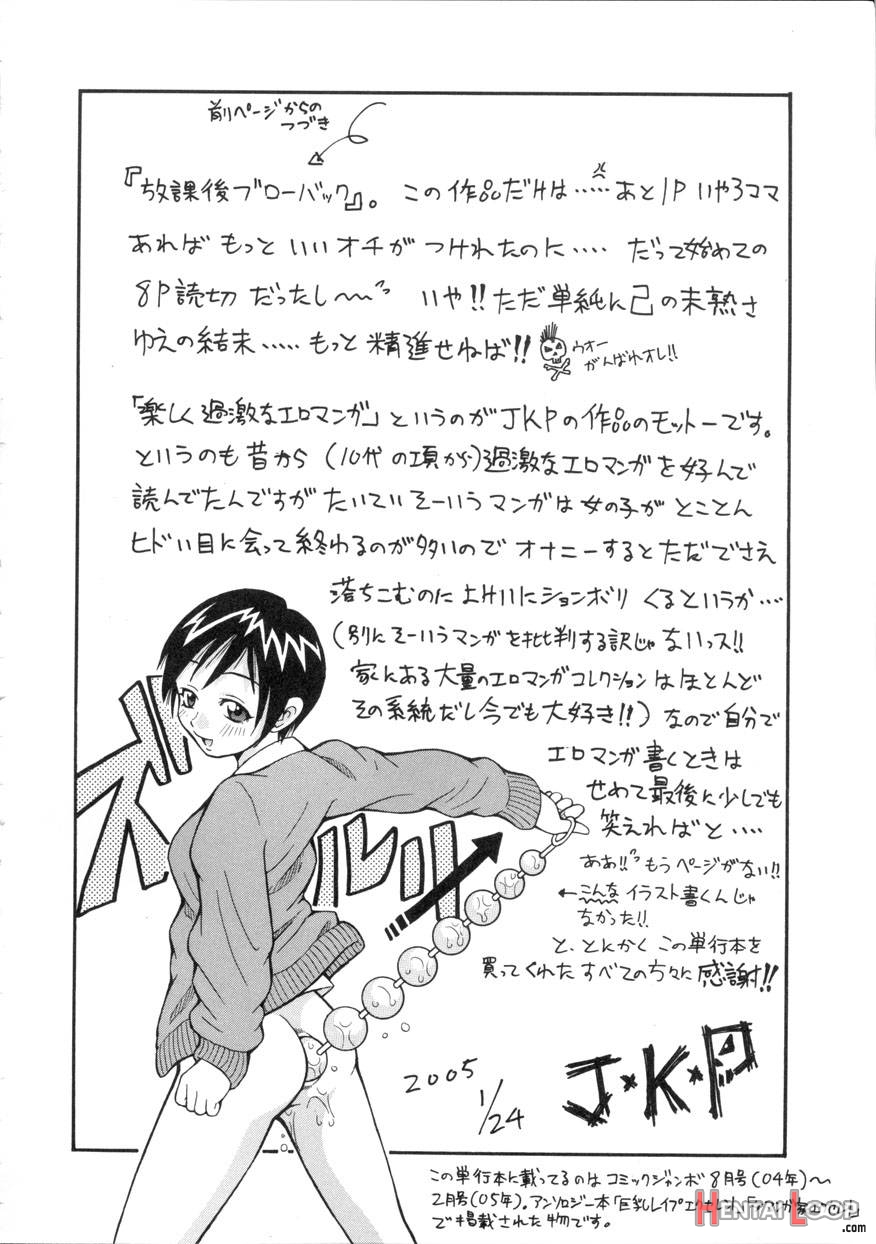 前ページからの
つづき
『放課後ブローバック』。この作品だけは……あと1P いやろママ
あれば もっと いい オチが つけれたのに…… だって始めての
8P読切 だったし〜〜 いや!! ただ 単純に 己の未熟さ
ゆえの結末…… もっと 精進せねば!!
ウオー
がんばれオレ!!
「楽しく過激なエロマンガ」というのがJKPの作品のモットーです。
というのも昔から (10代の項から)過激なエロマンガを好んで
読んでたんですが たいていそーいうマンガは女の子が とことん
ヒドい目に会って終わるのが多いので オナニーするとただでさえ
落ちこむのに よけいにションボリ くるというか…
(別にそーいうマンガを批判する訳じゃないっス!!
家にある大量のエロマンガコレクションはほとんど
その系統だし今でも大好き!!) なので自分で
エロマンガ書くときは
せめて最後に少しでも
笑えればと……
ああ!! もうページがない!!
←こんな イラスト書くんじゃ
なかった!!
と、とにかく この単行本を
買ってくれた すべての方々に 感謝!!
ズルルリ
2005
1/24
J・K・P
この単行本に載ってるのは コミックジャンボ 8月号(04年)〜
2月号(05年)。アンソロジー本「巨乳レイプ
で掲載された物です。
HENTAI LOOP
.com